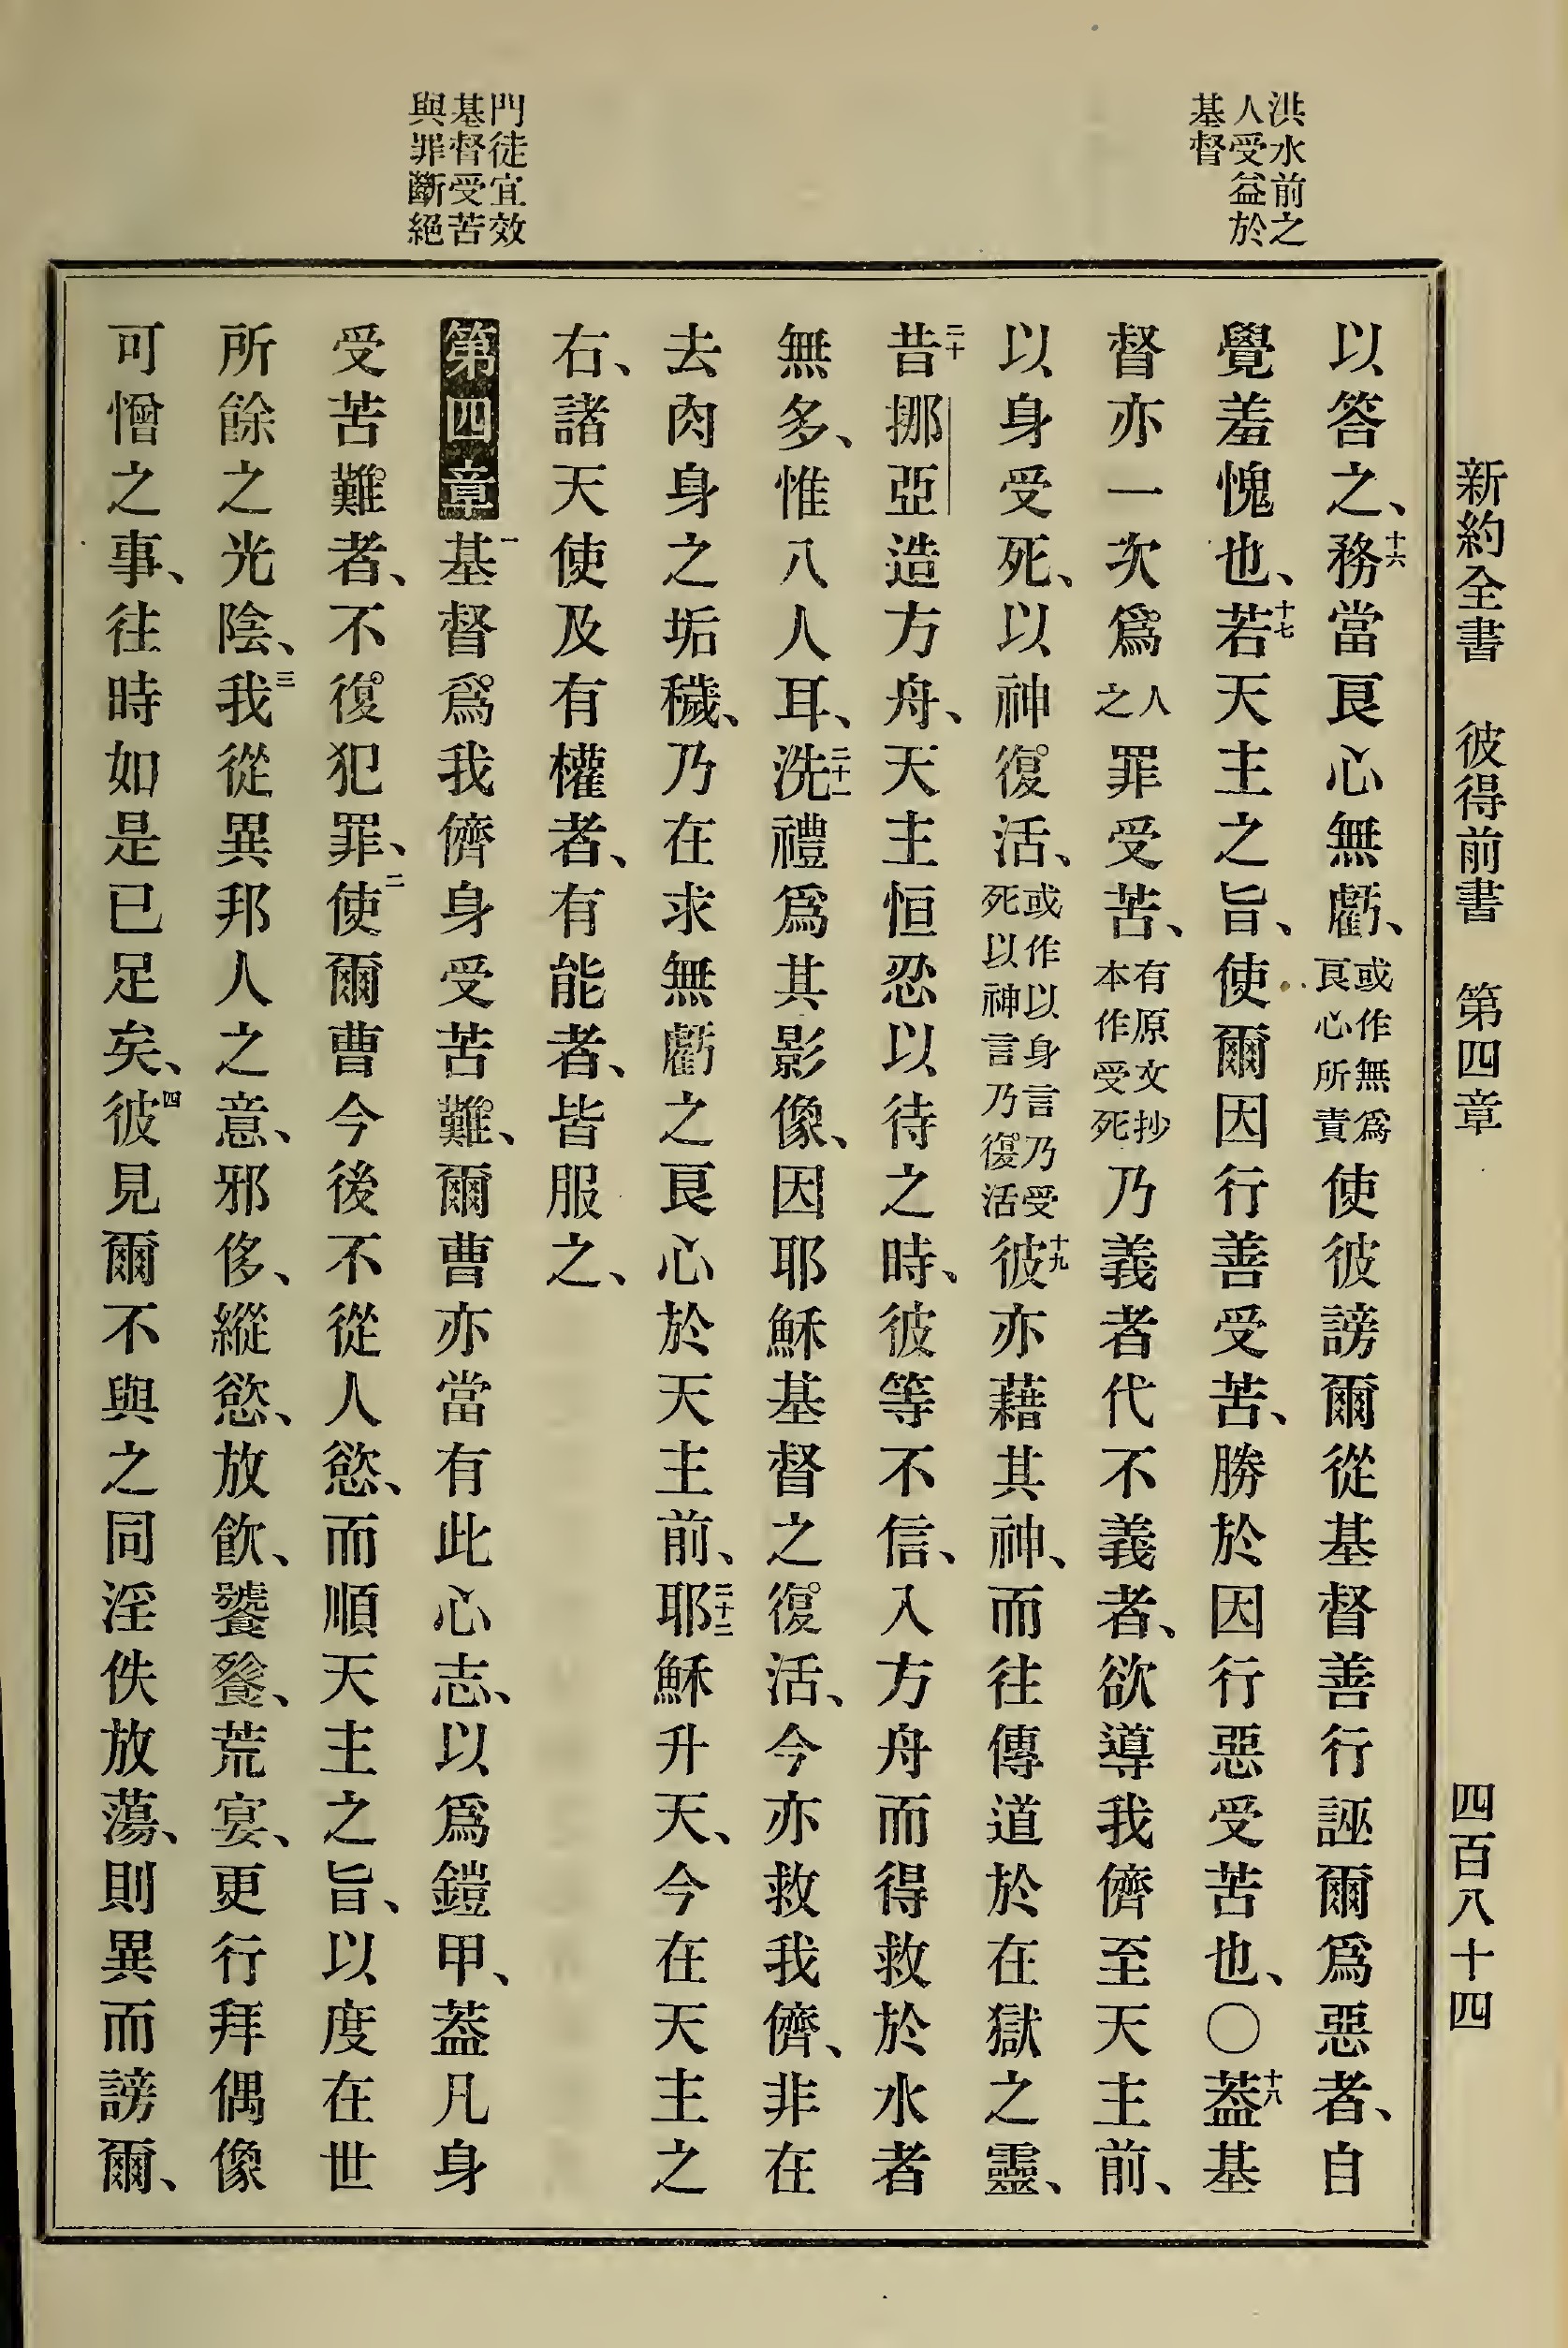 新約全書 彼得前書 第四章 四百八十四
洪水前之
人受益於
基督
門徒宜效
基督受苦
與罪斷絕
以答之、十六務當良心無虧、或作無爲良心所責使彼謗爾從基督善行誣爾爲惡者、自
覺羞愧也、十七若天主之旨、使爾因行善受苦、勝於因行惡受苦也、〇十八蓋基
督亦一次爲人之罪受苦、有原文抄本作受死乃義者代不義者、欲導我儕至天主前、
以身受死、以神復活、或作以身言乃受死以神言乃復活十九彼亦藉其神、而往傳道於在獄之靈、
二十昔挪亞造方舟、天主恒忍以待之時、彼等不信、入方舟而得救於水者
無多、惟八人耳、二十一洗禮爲其影像、因耶穌基督之復活、今亦救我儕、非在
去肉身之垢穢、乃在求無虧之良心於天主前、二十二耶穌升天、今在天主之
右、諸天使及有權者、有能者、皆服之、
第四章一基督爲我儕身受苦難、爾曹亦當有此心志、以爲鎧甲、蓋凡身
受苦難者、不復犯罪、二使爾曹今後不從人慾、而順天主之旨、以度在世
所餘之光陰、三我從異邦人之意、邪侈、縱慾、放飲、饕餮、荒宴、更行拜偶像
可憎之事、往時如是已足矣、四彼見爾不與之同淫佚放蕩、則異而謗爾、